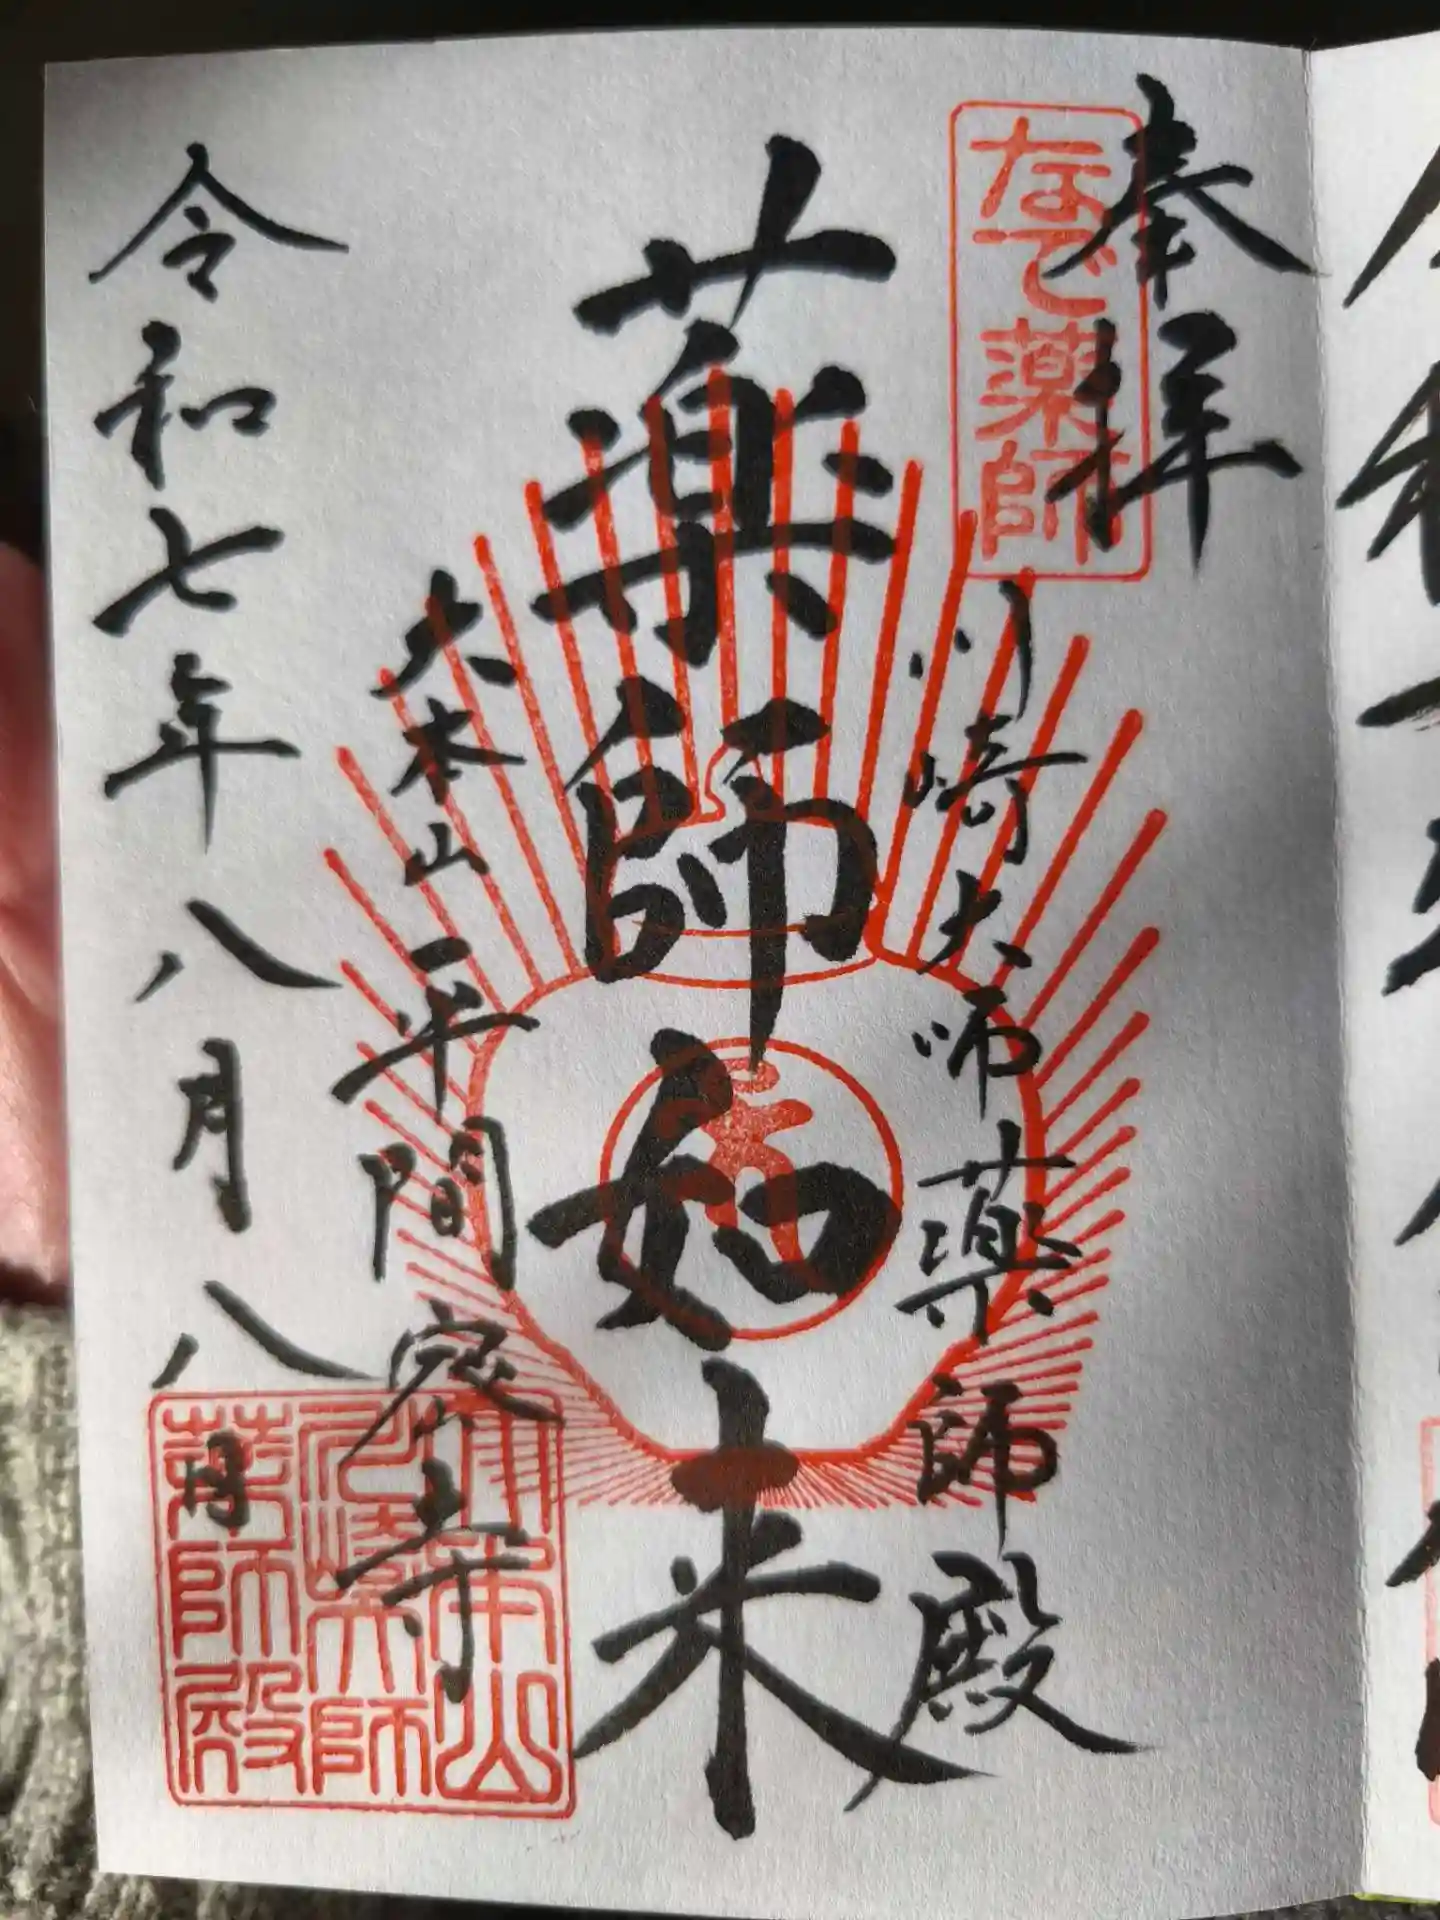 奉拝
なで薬師
川崎大師薬師殿
薬師如来
大本山平間密寺
令和七年八月八日
大本山
川崎大師
薬師殿